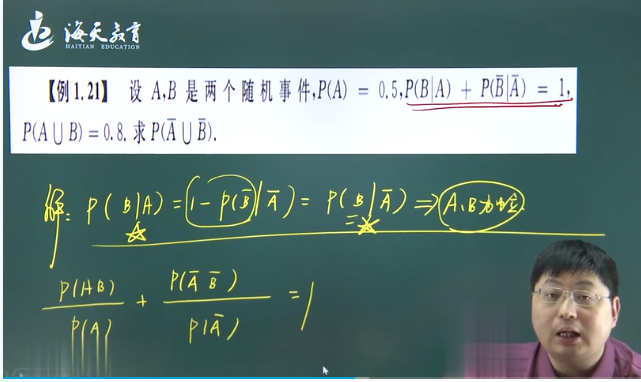 海天教育
HAITIAN EDUCATION
【例1.21】 设 A,B 是两个随机事件,P(A) = 0.5,P(B|A) + P(B̅|A̅) = 1,
P(A∪B)=0.8. 求 P(A̅∪B̅).
解: P(B|A) = 1-P(B̅|A̅) = P(B|A̅) ⇒ A、B为独立
P(AB)/P(A) + P(A̅ B̅)/P(A̅) = 1